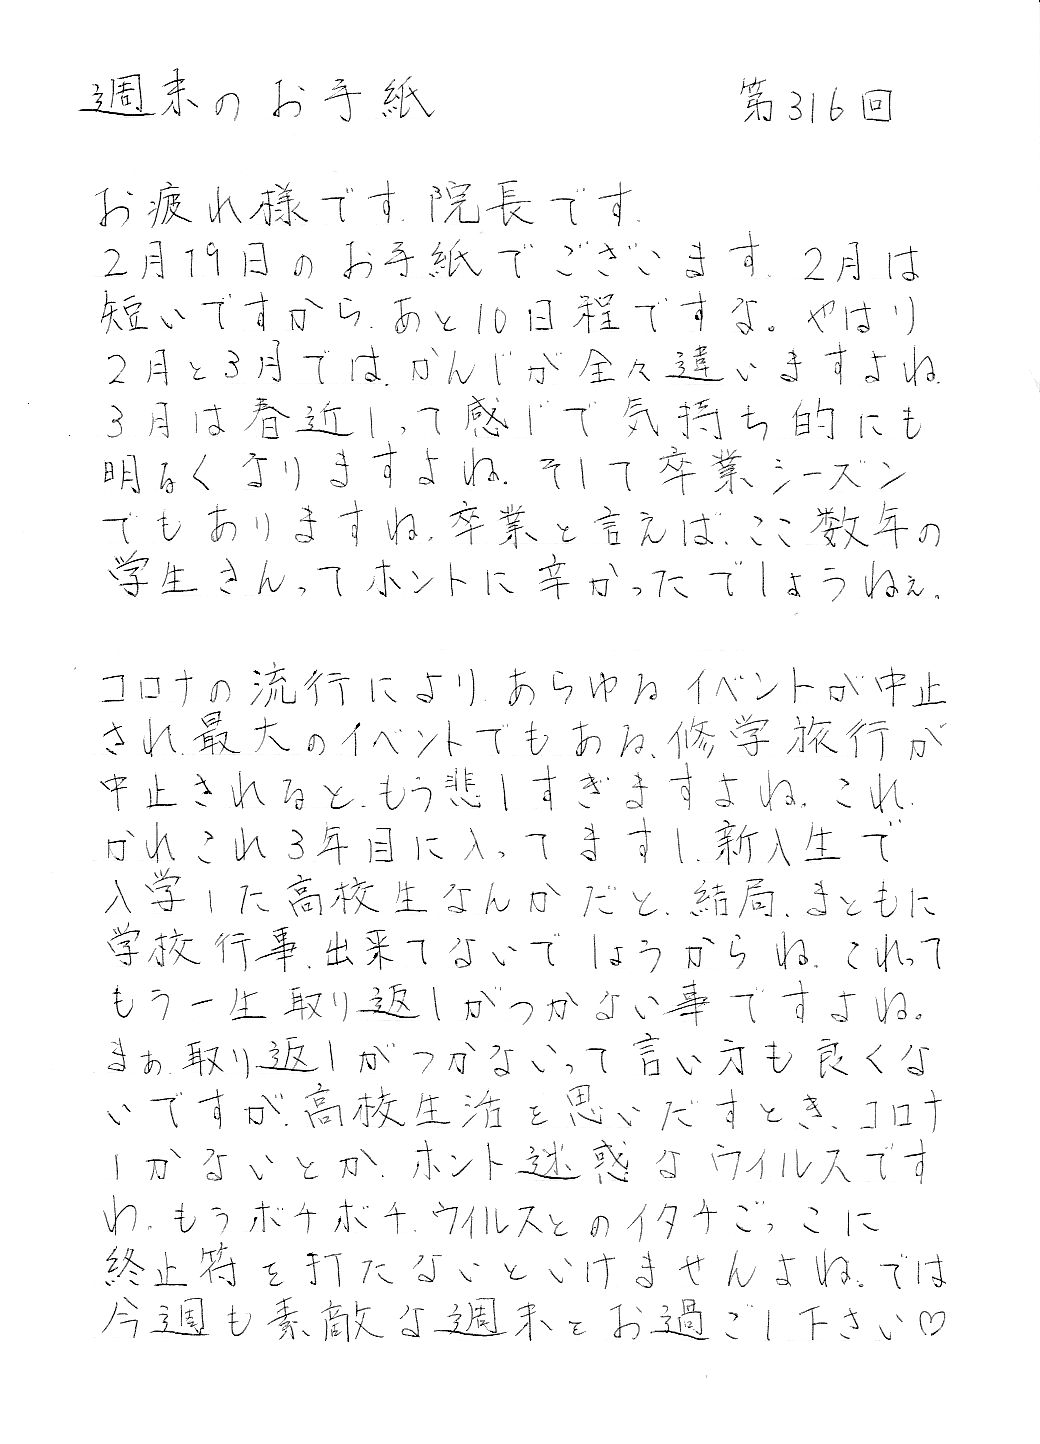 週末のお手紙 第316回
お疲れ様です.院長です.
2月19日のお手紙でございます.2月は
短いですから.あと10日程ですな。やはり
2月と3月では.かんじが全々違いますよね.
3月は春近しって感じで気持ち的にも
明るくなりますよね.そして卒業シーズン
でもありますね.卒業と言えば、ここ数年の
学生さんってホントに辛かったでしょうねぇ.
コロナの流行により.あらゆるイベントが中止
され.最大のイベントでもある、修学旅行が
中止されると.もう悲しすぎますよね.これ.
かれこれ3年目に入ってますし.新入生で
入学した高校生なんかだと.結局.まともに
学校行事.出来てないでしょうからね.これって
もう一生取り返しがつかない事ですよね。
まぁ.取り返しがつかないって言い方も良くな
いですが.高校生活を思いだすとき、コロナ
しかないとか.ホント迷惑なウイルスです
わ.もうボチボチ.ウイルスとのイタチごっこに
終止符を打たないといけませんよね.では
今週も素敵な週末をお過ごし下さい♡